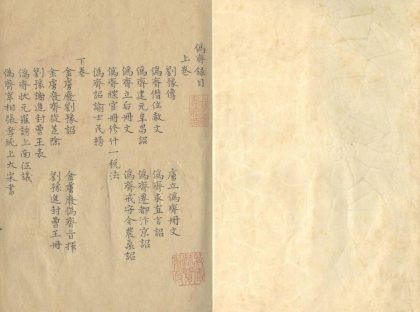 偽齊錄目
上卷
劉豫傳　虜立偽齊冊文
偽齊僭位赦文　偽齊求直言詔
偽齊建元阜昌詔　偽齊遷都汴京詔
偽齊立后冊文　偽齊戒守令農桑詔
偽齊牒官冊修什一稅法
偽齊詔諭士民榜
下卷
金虜廢劉豫詔　金虜廢偽齊指揮
金虜廢齊後差除　劉豫進封曹王冊
劉豫謝進封曹王表
偽齊狀元羅誘上南征議
偽齊宰相張孝純上大宋書